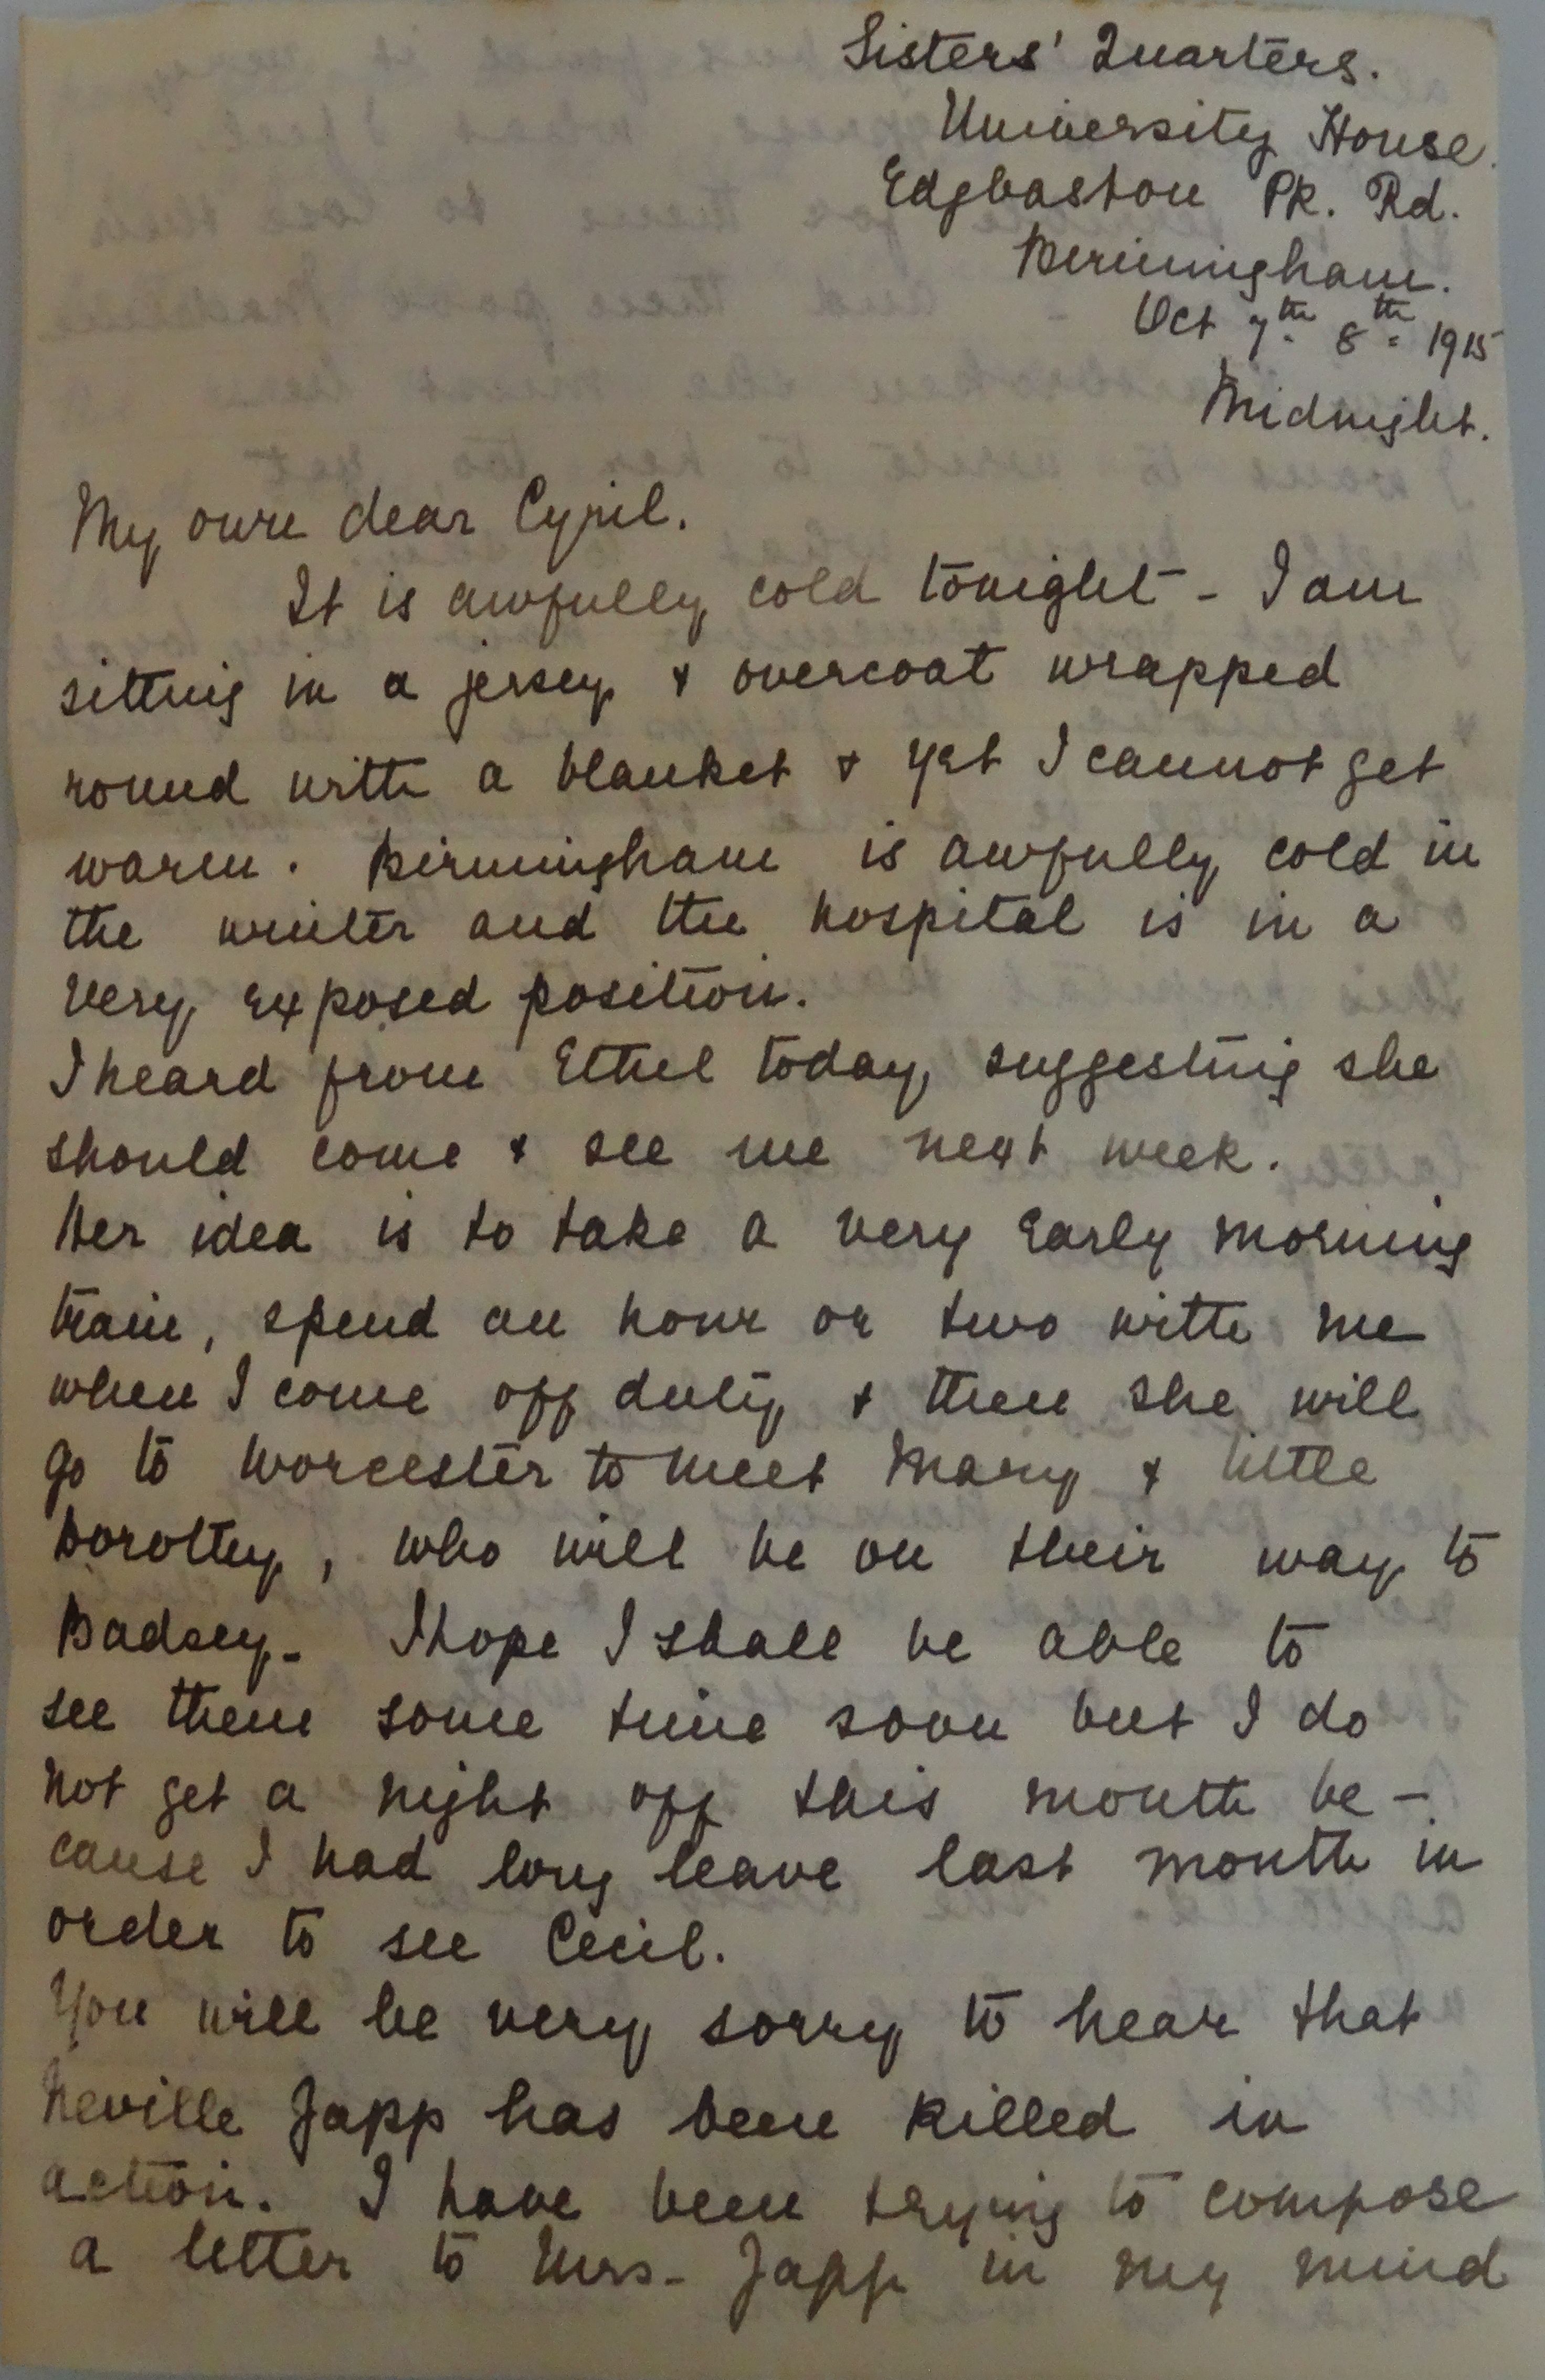 Sisters' Quarters.
University House.
Edgbaston Pk. Rd.
Birmingham.
Oct 7th. 8th = 1915
Midnight.
My own dear Cyril.
It is awfully cold tonight - I am
sitting in a jersey & overcoat wrapped
round with a blanket & yet I cannot get
warm. Birmingham is awfully cold in
the winter and the hospital is in a
very exposed position.
I heard from Ethel today, suggesting she
should come & see me next week.
Her idea is to take a very early morning
train, spend an hour or two with me
when I come off duty & then she will
go to Worcester to meet Mary & little
Dorothy, who will be on their way to
Badsey - I hope I shall be able to
see them some time soon but I do
not get a night off this month be-
cause I had long leave last month in
order to see Cecil.
You will be very sorry to hear that
Neville Japp has been killed in
action. I have been trying to compose
a letter to Mrs - Japp in my mind